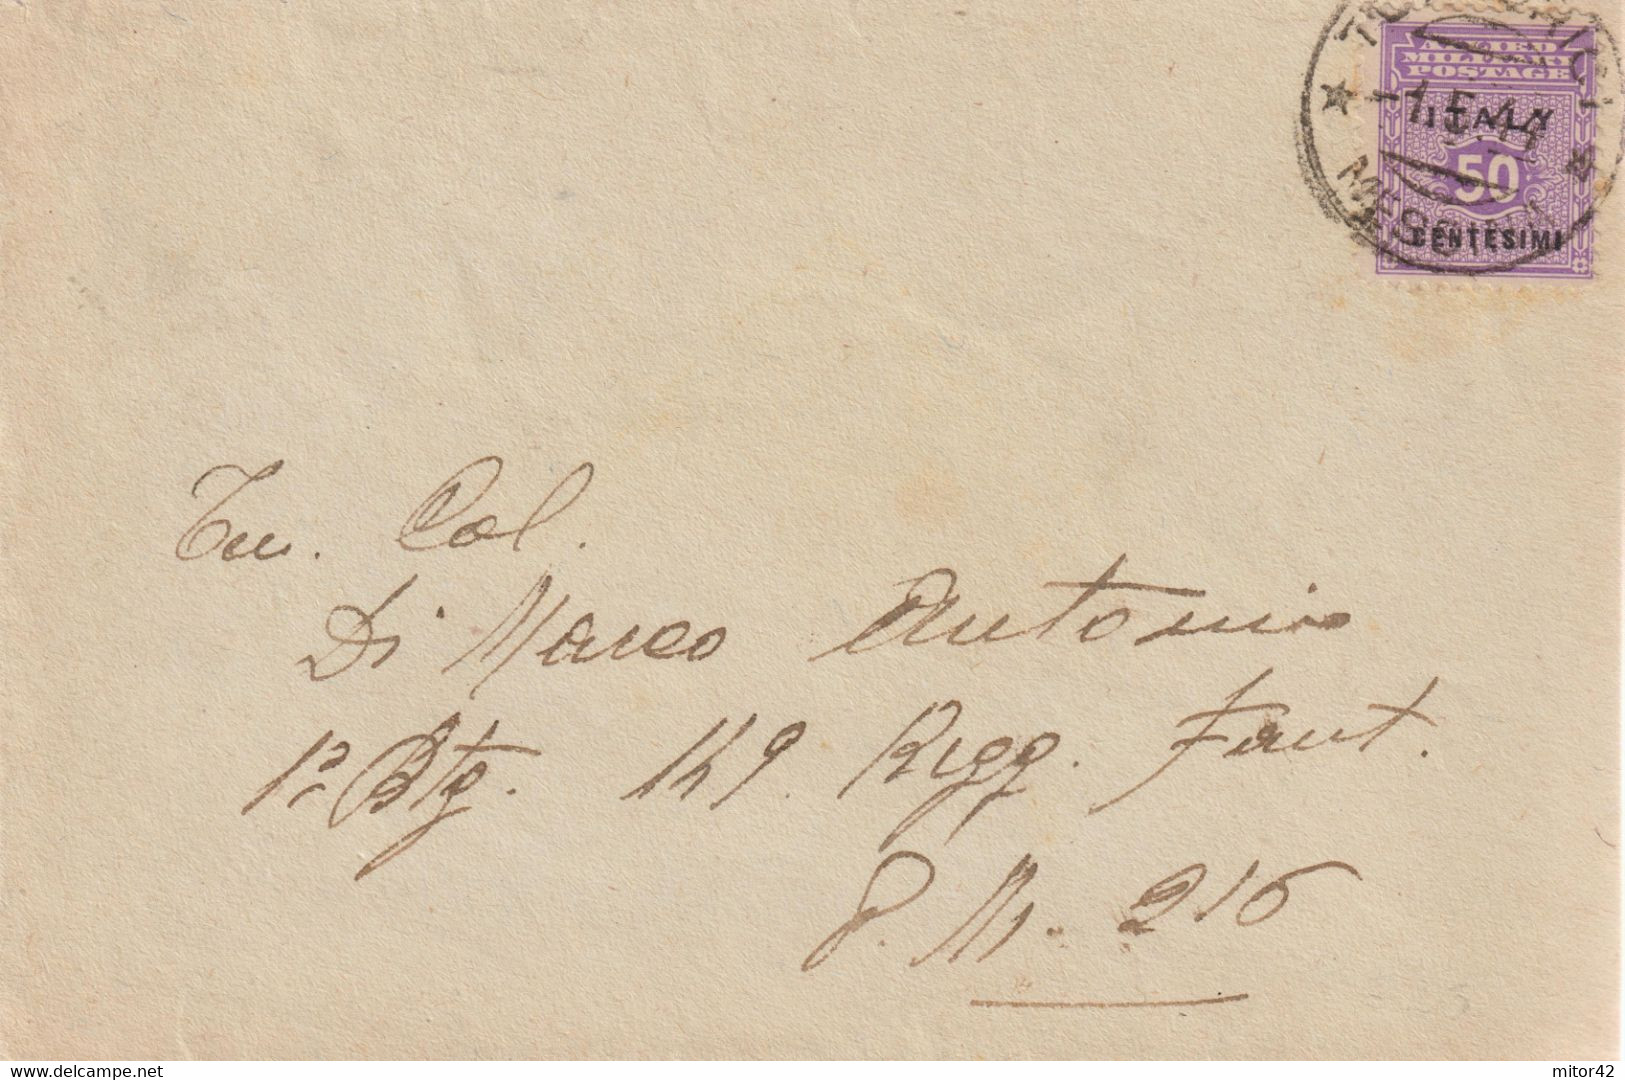 ALLIED
MILITARY
POSTAGE
ITALY
50
CENTESIMI
1.5.44
Col.
Di Marco Antonio
1º Btg. 149 Regg. Fant.
P. M. 216
delcampe.net
mitor42